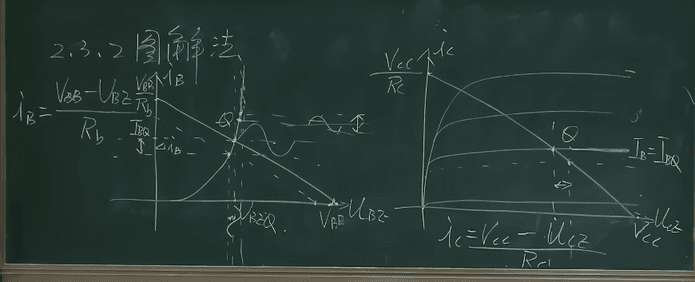 2.3.2 图解法
iB
iB = VBB - UBE / Rb
VBB / Rb
IBQ
ΔiB
Q
UBEQ
VBB
UBE
iC
VCC / Rc
Q
IB = IBQ
UCE
VCC
iC = VCC - UCE / Rc